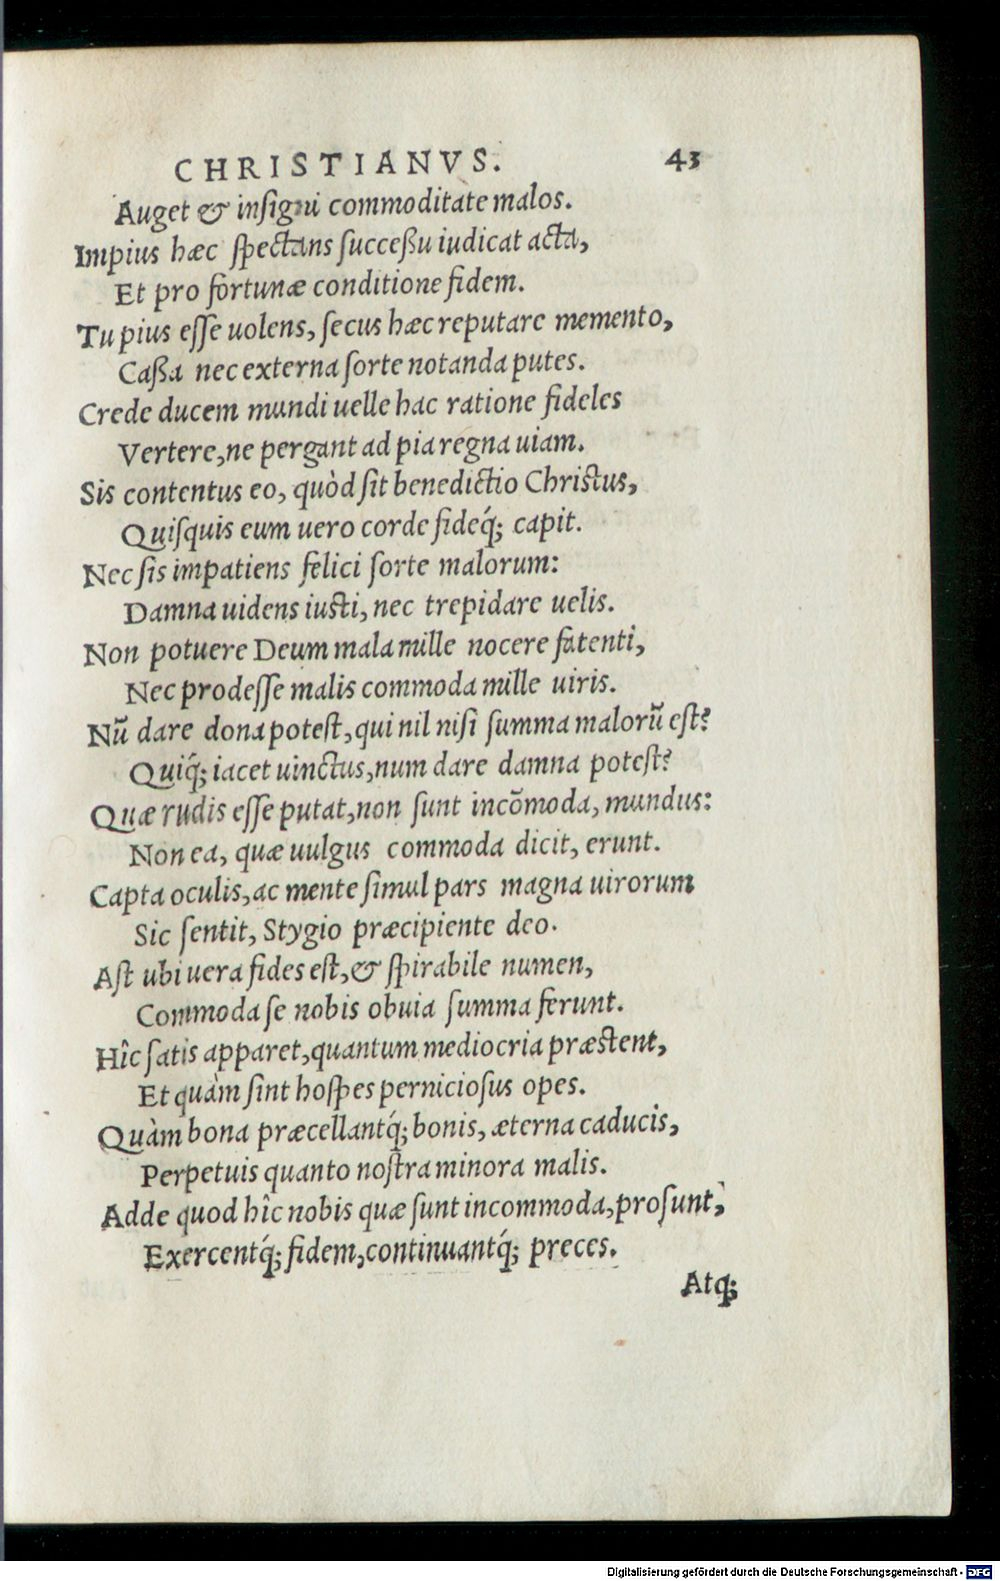 CHRISTIANVS. 43
Auget & insigni commoditate malos.
Impius hæc spectans succeßu iudicat acta,
Et pro fortunæ conditione fidem.
Tu pius esse uolens, secus hæc reputare memento,
Caßa nec externa sorte notanda putes.
Crede ducem mundi uelle hac ratione fideles
Vertere, ne pergant ad pia regna uiam.
Sis contentus eo, quòd sit benedictio Christus,
Quisquis eum uero corde fideq́; capit.
Nec sis impatiens felici sorte malorum:
Damna uidens iusti, nec trepidare uelis.
Non potuere Deum mala mille nocere fatenti,
Nec prodesse malis commoda mille uiris.
Nũ dare dona potest, qui nil nisi summa malorũ est?
Quiq́; iacet uinctus, num dare damna potest?
Quæ rudis esse putat, non sunt incõmoda, mundus:
Non ea, quæ uulgus commoda dicit, erunt.
Capta oculis, ac mente simul pars magna uirorum
Sic sentit, Stygio præcipiente deo.
Ast ubi uera fides est, & spirabile numen,
Commoda se nobis obuia summa ferunt.
Hîc satis apparet, quantum mediocria præstent,
Et quàm sint hospes perniciosus opes.
Quàm bona præcellantq́; bonis, æterna caducis,
Perpetuis quanto nostra minora malis.
Adde quod hîc nobis quæ sunt incommoda, prosunt,
Exercentq́; fidem, continuantq́; preces.
Atq;
Digitalisierung gefördert durch die Deutsche Forschungsgemeinschaft - DFG